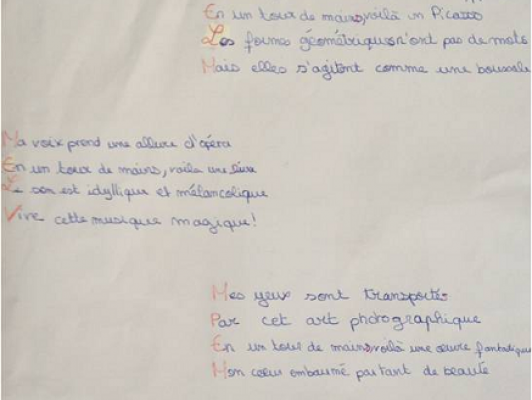 En un tour de mains, voilà un Picasso
Les formes géométriques n'ont pas de mots
Mais elles s'agitent comme une boussole
Ma voix prend une allure d'opéra
En un tour de mains, voila une
Le son est idyllique et mélancolique
Vive cette musique magique!
Mes yeux sont transportés
Par cet art photographique
En un tour de mains, voilà une œuvre fantastique
Mon cœur embaumé par tant de beauté